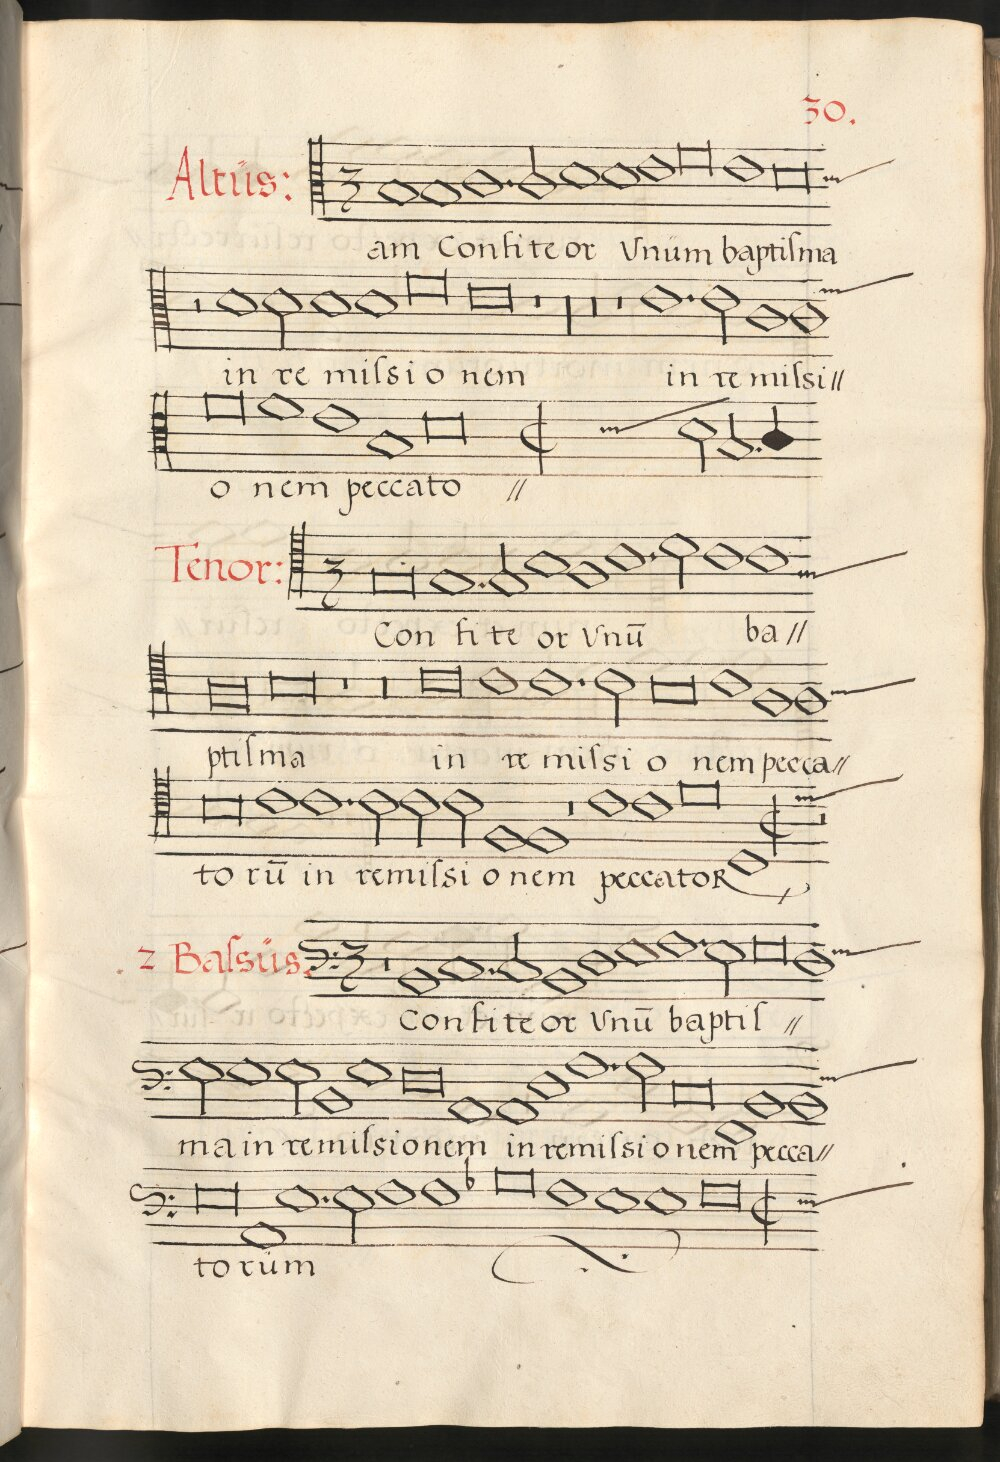 30.
Altüs:
am Confiteor Vnüm baptiſma
in re miſsi o nem in re miſsi//
o nem peccato //
Tenor:
Con fi te or Vnū ba//
ptiſma in re miſsi o nem pecca//
to rū in remiſsi o nem peccatoR
2 Baſsüs.
Confiteor Vnū baptiſ //
ma in remiſsionem in remiſsionem pecca//
torüm